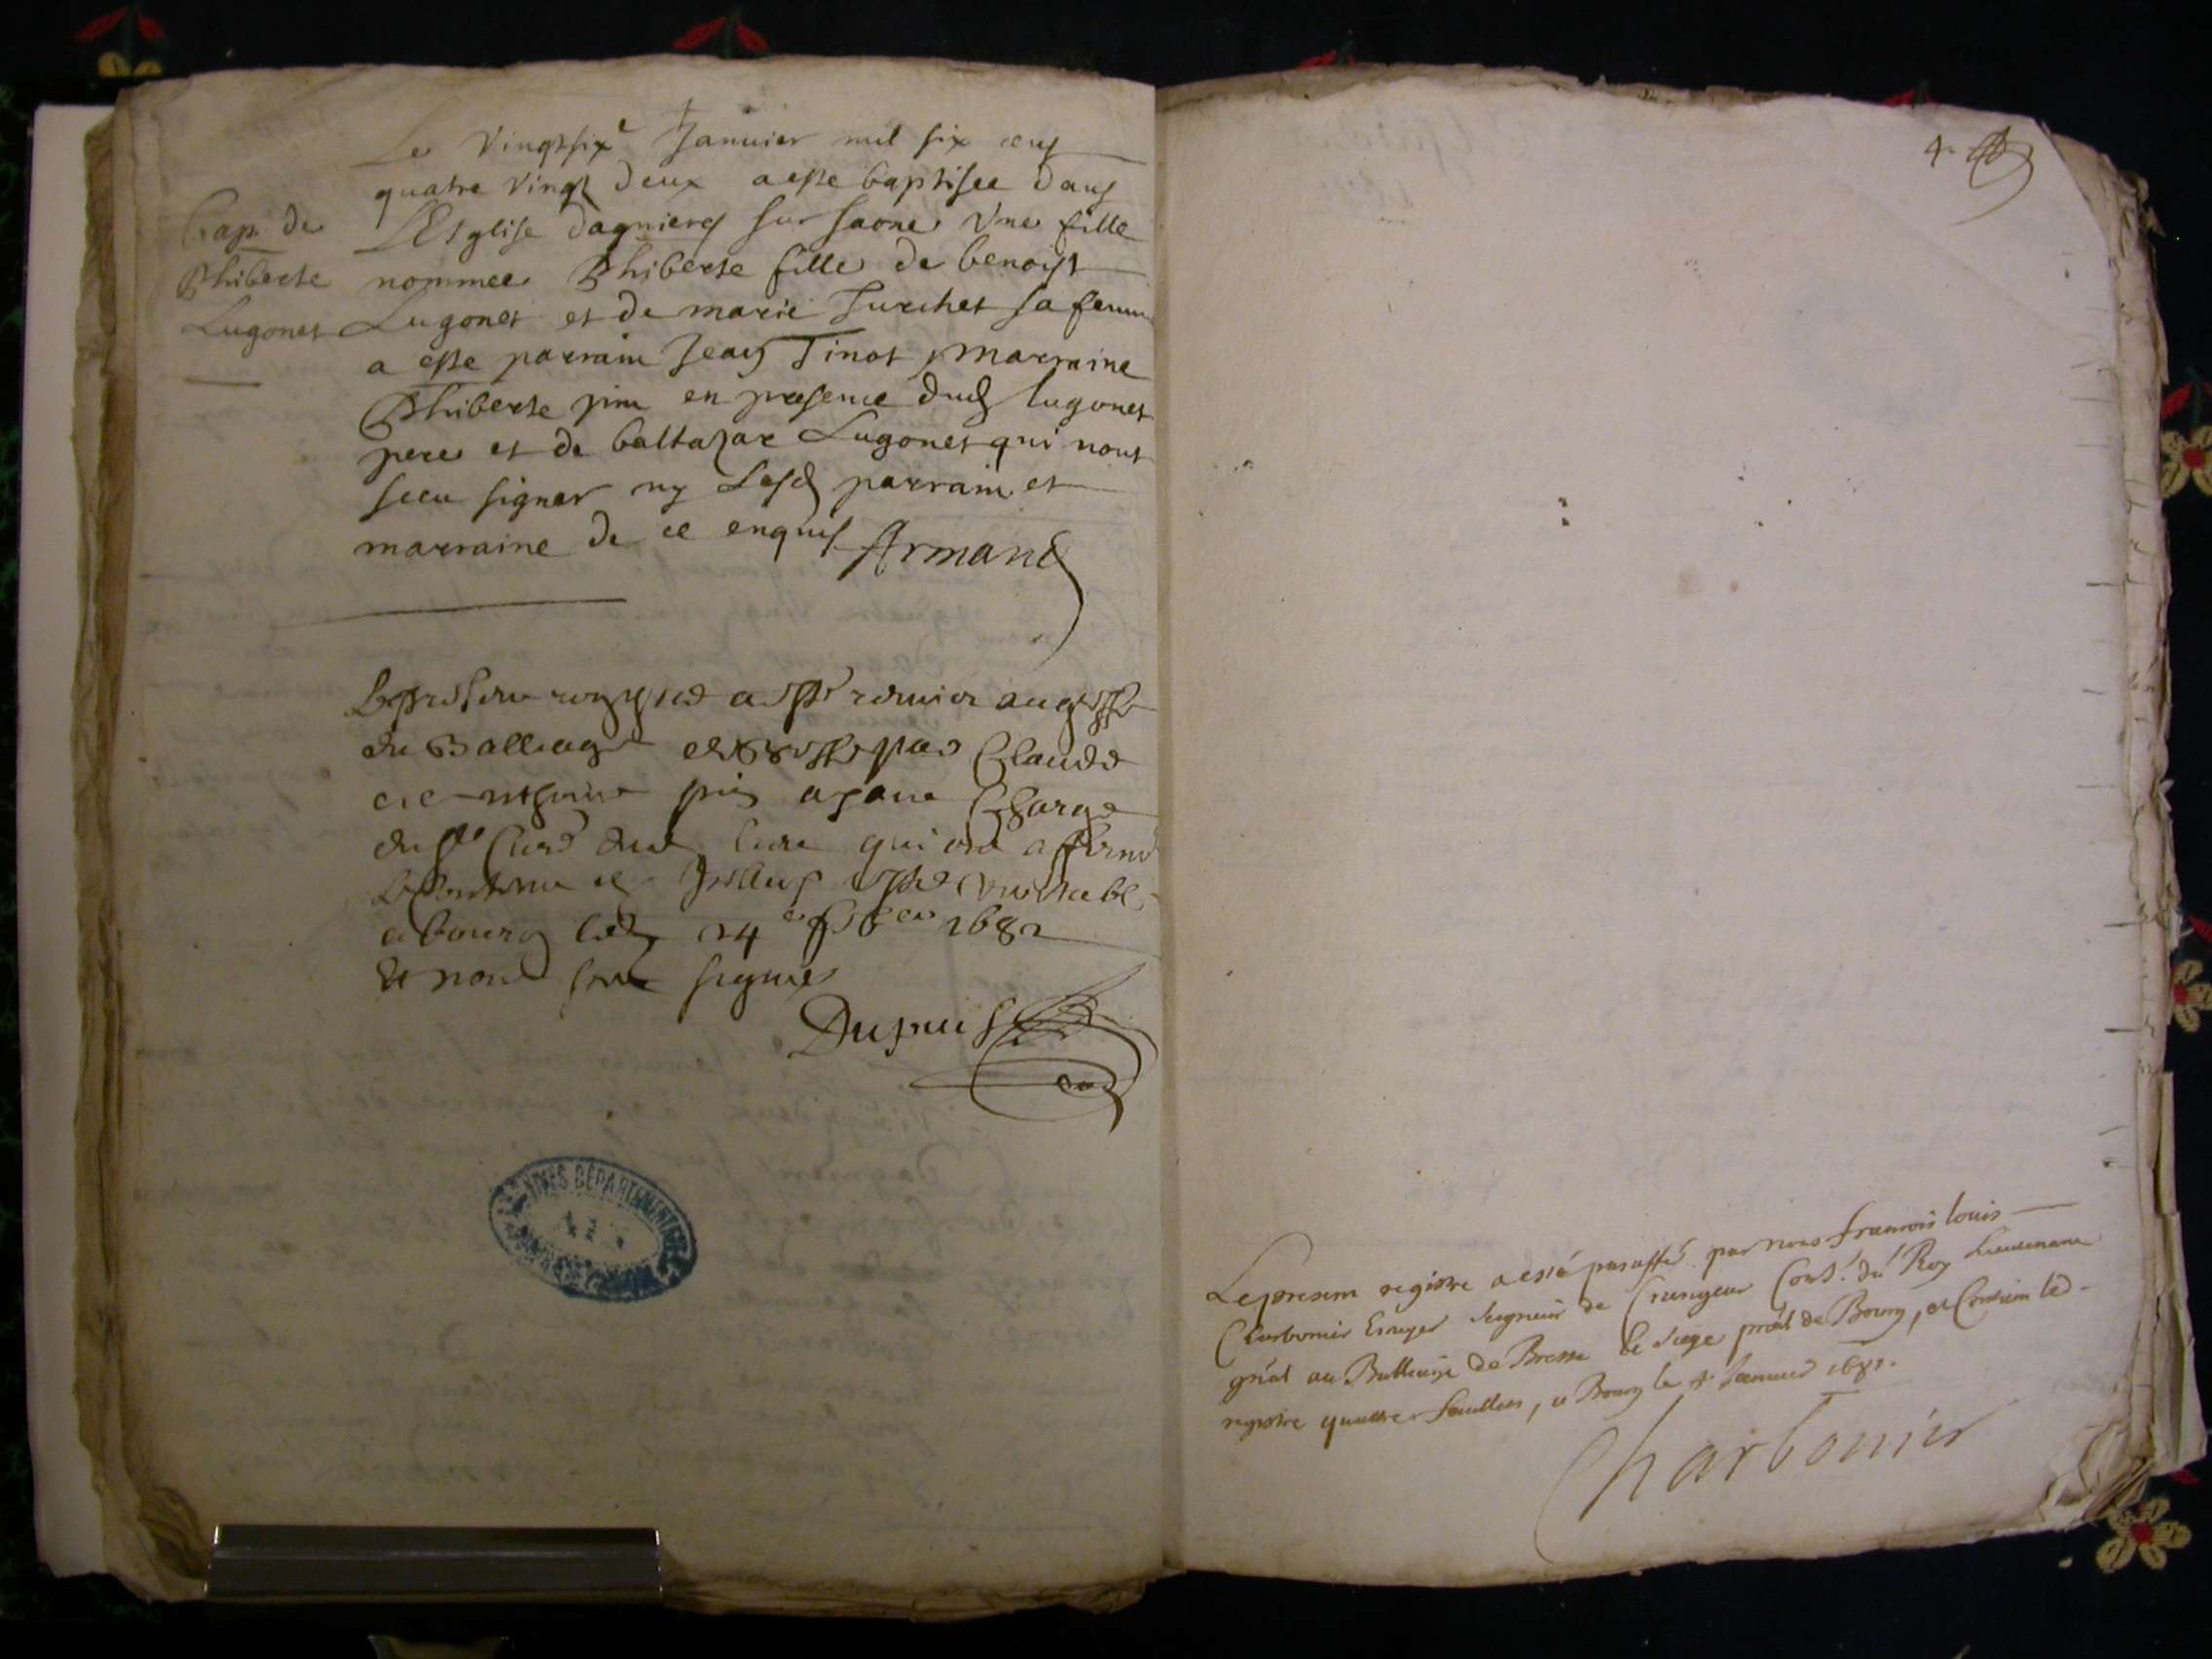 Le Vingtsix^e Janvier mil six cens
quatre vingt deux a esté baptisee dans
L'Esglise dagniere sur saone Une fille
nommee Phiberte fille de benoist
Lugonet et de marie Turchet sa femme
a esté parrain Jean Tinot, marraine
Phiberte pin en presence dud lugonet
pere et de baltazar Lugonet qui nont
sceu signer ny Lesd parrain et
marraine de ce enquis Armand
bap. de
Phiberte
Lugonet
Le present registre a esté remis au greffe
du Balliage de Bresse par Claude
pin ayant Charge
du s^r Curé dud lieu qui a affirmé
Le contenu en Icelluy estre veritable
a bourg led 24 1682
Et nous signé
Dupuis
ARCHIVES DÉPARTEMENTALES
4
Le present registre a esté paraffé par nous francois louis
Charbonier Escuyer Seigneur de Crangeac Cons.^r du Roy Lieutenant
gnal au Balliage de Bresse & siege pnal de Bourg, et Contien led
registre quattre feuillets, a Bourg le Janvier 1681.
Charbonier